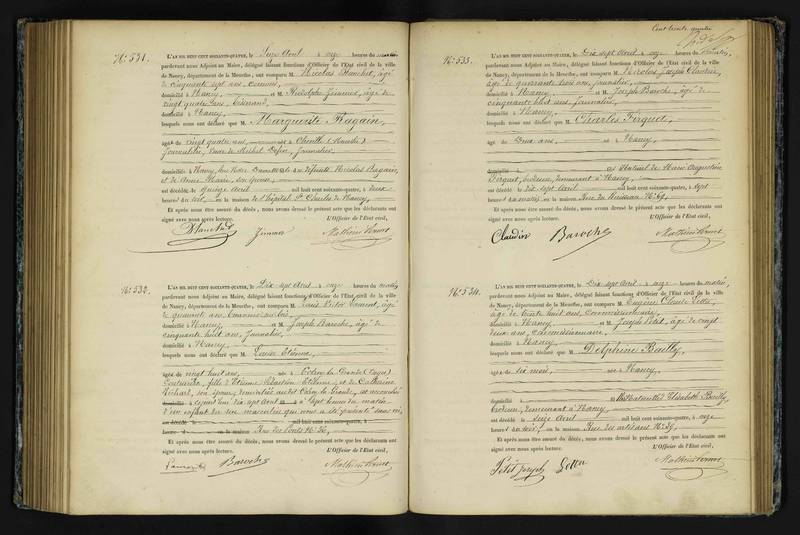 No. 531.
L'AN MIL HUIT CENT SOIXANTE-QUATRE, le Seize Avril à onze heures du matin
pardevant nous Adjoint au Maire, délégué faisant fonctions d'Officier de l'Etat civil de la ville
de Nancy, département de la Meurthe, ont comparu M. Nicolas Blanchet, âgé
de cinquante sept ans,
domicilié à Nancy, et M. Rodolphe Jimmer, âgé de
vingt quatre ans,
domicilié à Nancy,
lesquels nous ont déclaré que M. Marguerite Ragain,
âgée de vingt quatre ans, née à (Meurthe)
Journalière, Journalier,
domiciliée à Nancy, de défunts Nicolas Ragain
et de Anne Marie, son épouse,
est décédée le quinze Avril mil huit cent soixante-quatre, à deux
heures du soir, en la maison de l'hôpital St Charles de Nancy,
Et après nous être assuré du décès, nous avons dressé le présent acte que les déclarants ont
signé avec nous après lecture. L'Officier de l'Etat civil,
Blanchet Jimmer
No. 532.
L'AN MIL HUIT CENT SOIXANTE-QUATRE, le Dix sept Avril à onze heures du matin
pardevant nous Adjoint au Maire, délégué faisant fonctions d'Officier de l'Etat civil de la ville
de Nancy, département de la Meurthe, ont comparu M. Louis Victor
âgé de quarante ans,
domicilié à Nancy et M. Joseph Baroche, âgé de
cinquante huit ans, Journalier,
domicilié à Nancy,
lesquels nous ont déclaré que M. Louise Etienne,
âgée de vingt huit ans, née à (Vosges)
Couturière, fille d'Etienne Sébastien Etienne et de Catherine
Richard, son épouse, est accouchée
cejourd'hui dix sept Avril à sept heures du matin
d'un enfant du sexe masculin qui nous a été présenté sans vie,
est décédé le mil huit cent soixante-quatre, à
heure en la maison Rue des Ponts No. 36,
Et après nous être assuré du décès, nous avons dressé le présent acte que les déclarants ont
signé avec nous après lecture. L'Officier de l'Etat civil,
Baroche
Cent trente quatre
No. 533.
L'AN MIL HUIT CENT SOIXANTE-QUATRE, le Dix sept Avril à onze heures du matin,
pardevant nous Adjoint au Maire, délégué faisant fonctions d'Officier de l'Etat civil de la ville
de Nancy, département de la Meurthe, ont comparu M. Nicolas Joseph Claudin,
âgé de quarante trois ans, journalier,
domicilié à Nancy et M. Joseph Baroche, âgé de
cinquante huit ans, Journalier,
domicilié à Nancy,
lesquels nous ont déclaré que M. Charles Ferquet,
âgé de Deux ans, né à Nancy,
domicilié à fils Naturel de Marie Augustine
Ferquet, brodeuse, demeurant à Nancy,
est décédé le dix sept Avril mil huit cent soixante-quatre, à sept
heures du matin, en la maison Rue du Ruisseau No. 69,
Et après nous être assuré du décès, nous avons dressé le présent acte que les déclarants ont
signé avec nous après lecture. L'Officier de l'Etat civil,
Claudin Baroche
No. 534.
L'AN MIL HUIT CENT SOIXANTE-QUATRE, le Dix sept Avril à onze heures du matin,
pardevant nous Adjoint au Maire, délégué faisant fonctions d'Officier de l'Etat civil de la ville
de Nancy, département de la Meurthe, ont comparu M. Eugène Claude
âgé de trente huit ans, commissionnaire,
domicilié à Nancy et M. Joseph Petit, âgé de vingt
deux ans, commissionnaire,
domicilié à Nancy,
lesquels nous ont déclaré que M. Delphine Bailly,
âgée de dix mois, née à Nancy,
domicilié à fille Naturelle d'Elisabeth Bailly
brodeuse, demeurant à Nancy,
est décédée le Seize Avril mil huit cent soixante-quatre, à onze
heures du soir, en la maison Rue des artisans No. 39,
Et après nous être assuré du décès, nous avons dressé le présent acte que les déclarants ont
signé avec nous après lecture. L'Officier de l'Etat civil,
Petit Joseph